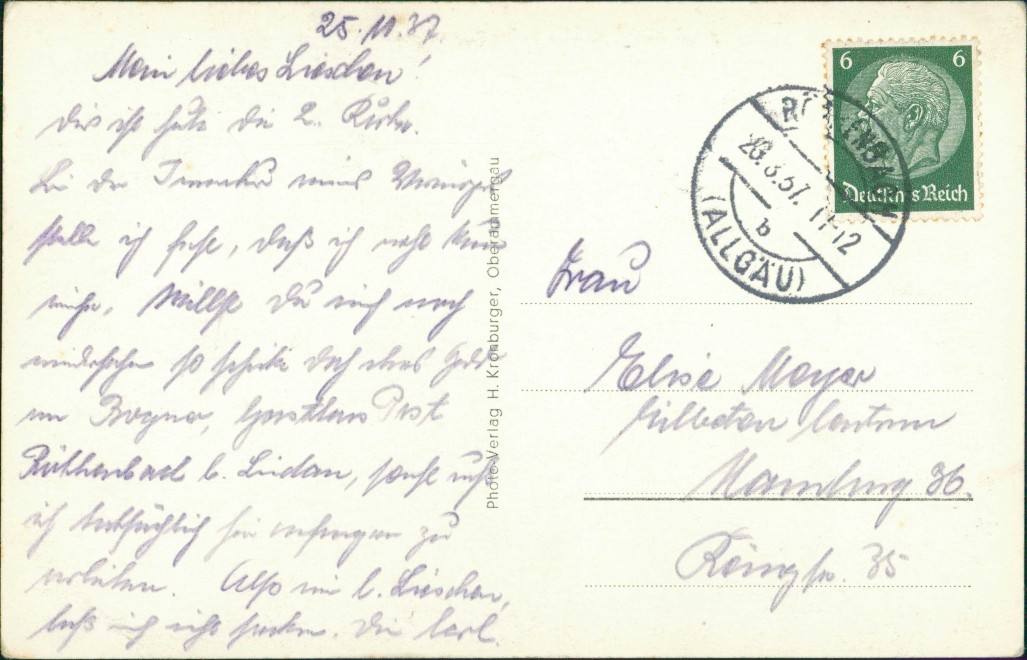 25.11.37.
Mein liebes Lieschen!
Dies ist heute die 2. Karte.
Bei der
stelle ich fest, daß ich nicht kann
Willst Du mich noch
so schicke doch etwas Geld
an Bogner, Gasthaus Post
Röthenbach b. Lindau, sonst muß
ich tatsächlich hier anfangen zu
arbeiten. Also mein l. Lieschen,
laß mich nicht stecken. Dein Carl.
Photo-Verlag H. Kronburger, Oberammergau
6 6
Deutsches Reich
RÖTHENBACH
23.3.37. 11-12
b
(ALLGÄU)
Frau
Elise Meyer
Hamburg 36.
35